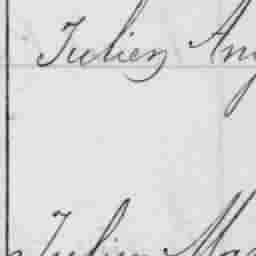 Julien An
Julien Ma